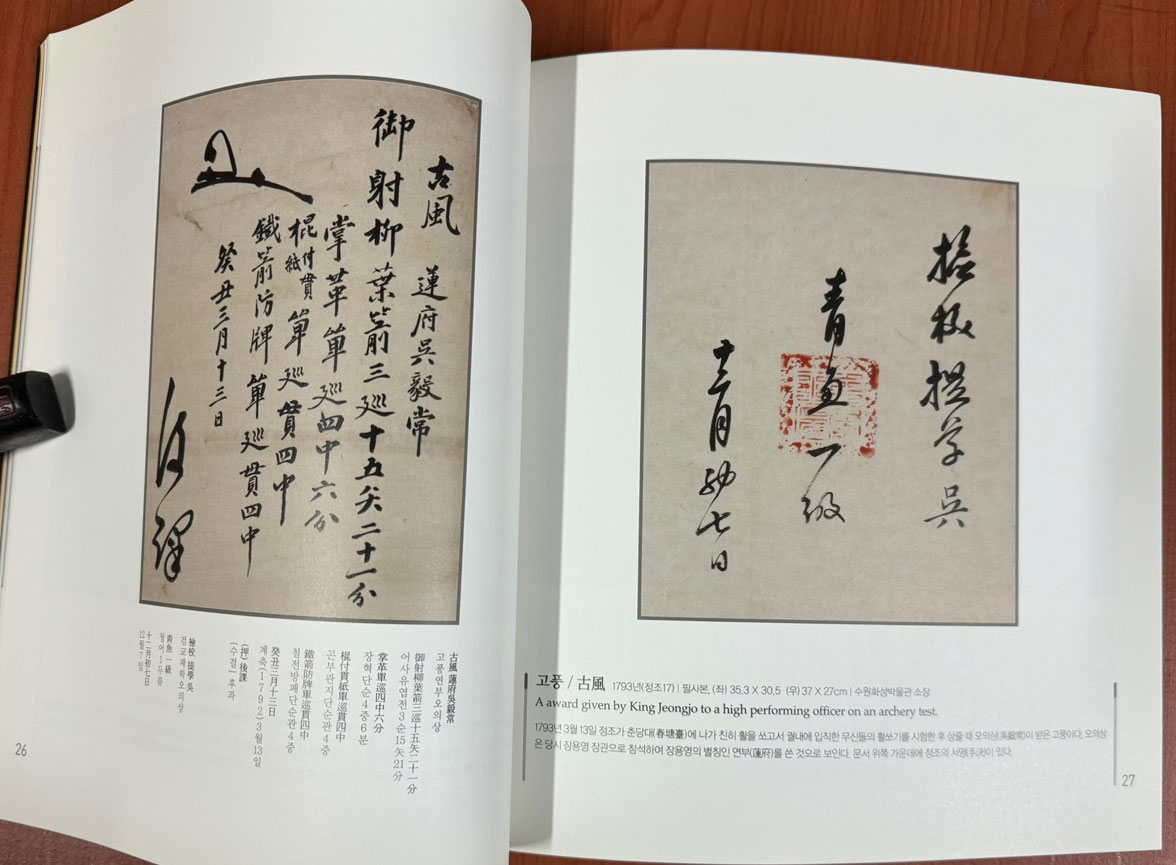 古風
蓮府吳毅常
御射柳葉箭三巡十五矢二十一分
掌革單巡四中六分
棍付貫紙單巡貫四中
鐵箭防牌單巡貫四中
癸丑三月十三日
古風 蓮府吳毅常
고풍연부오의상
御射柳葉箭三巡十五矢二十一分
어사유엽전3순15矢21分
掌革單巡四中六分
장혁단순4중6분
棍付貫紙單巡貫四中
곤부관지단순관4중
鐵箭防牌單巡貫四中
철전방패단순관4중
癸丑三月十三日
계축(1792)3월13일
(押)後課
[수결] 후과
檢校 提學 吳
검교제학오의상
靑魚 一級
청어1두름
十二月初七日
12월7일
26
檢校提學吳
青魚一級
十二月初七日
고풍 / 古風 1793년(정조17) | 필사본, (좌) 35,3 X 30,5 (우) 37 X 27cm | 수원화성박물관 소장
A award given by King Jeongjo to a high performing officer on an archery test.
1793년 3월 13일 정조가 춘당대(春塘臺)에 나가 친히 활을 쏘고서 궐내에 입직한 무신들의 활쏘기를 시험한 후 상줄 때 오의상(吳毅常)이 받은 고풍이다. 오의상
은 당시 장용영 장관으로 참석하여 장용영의 별칭인 연부(蓮府)를 쓴 것으로 보인다. 문서 위쪽 가운데에 정조의 서명(手決)이 있다.
27